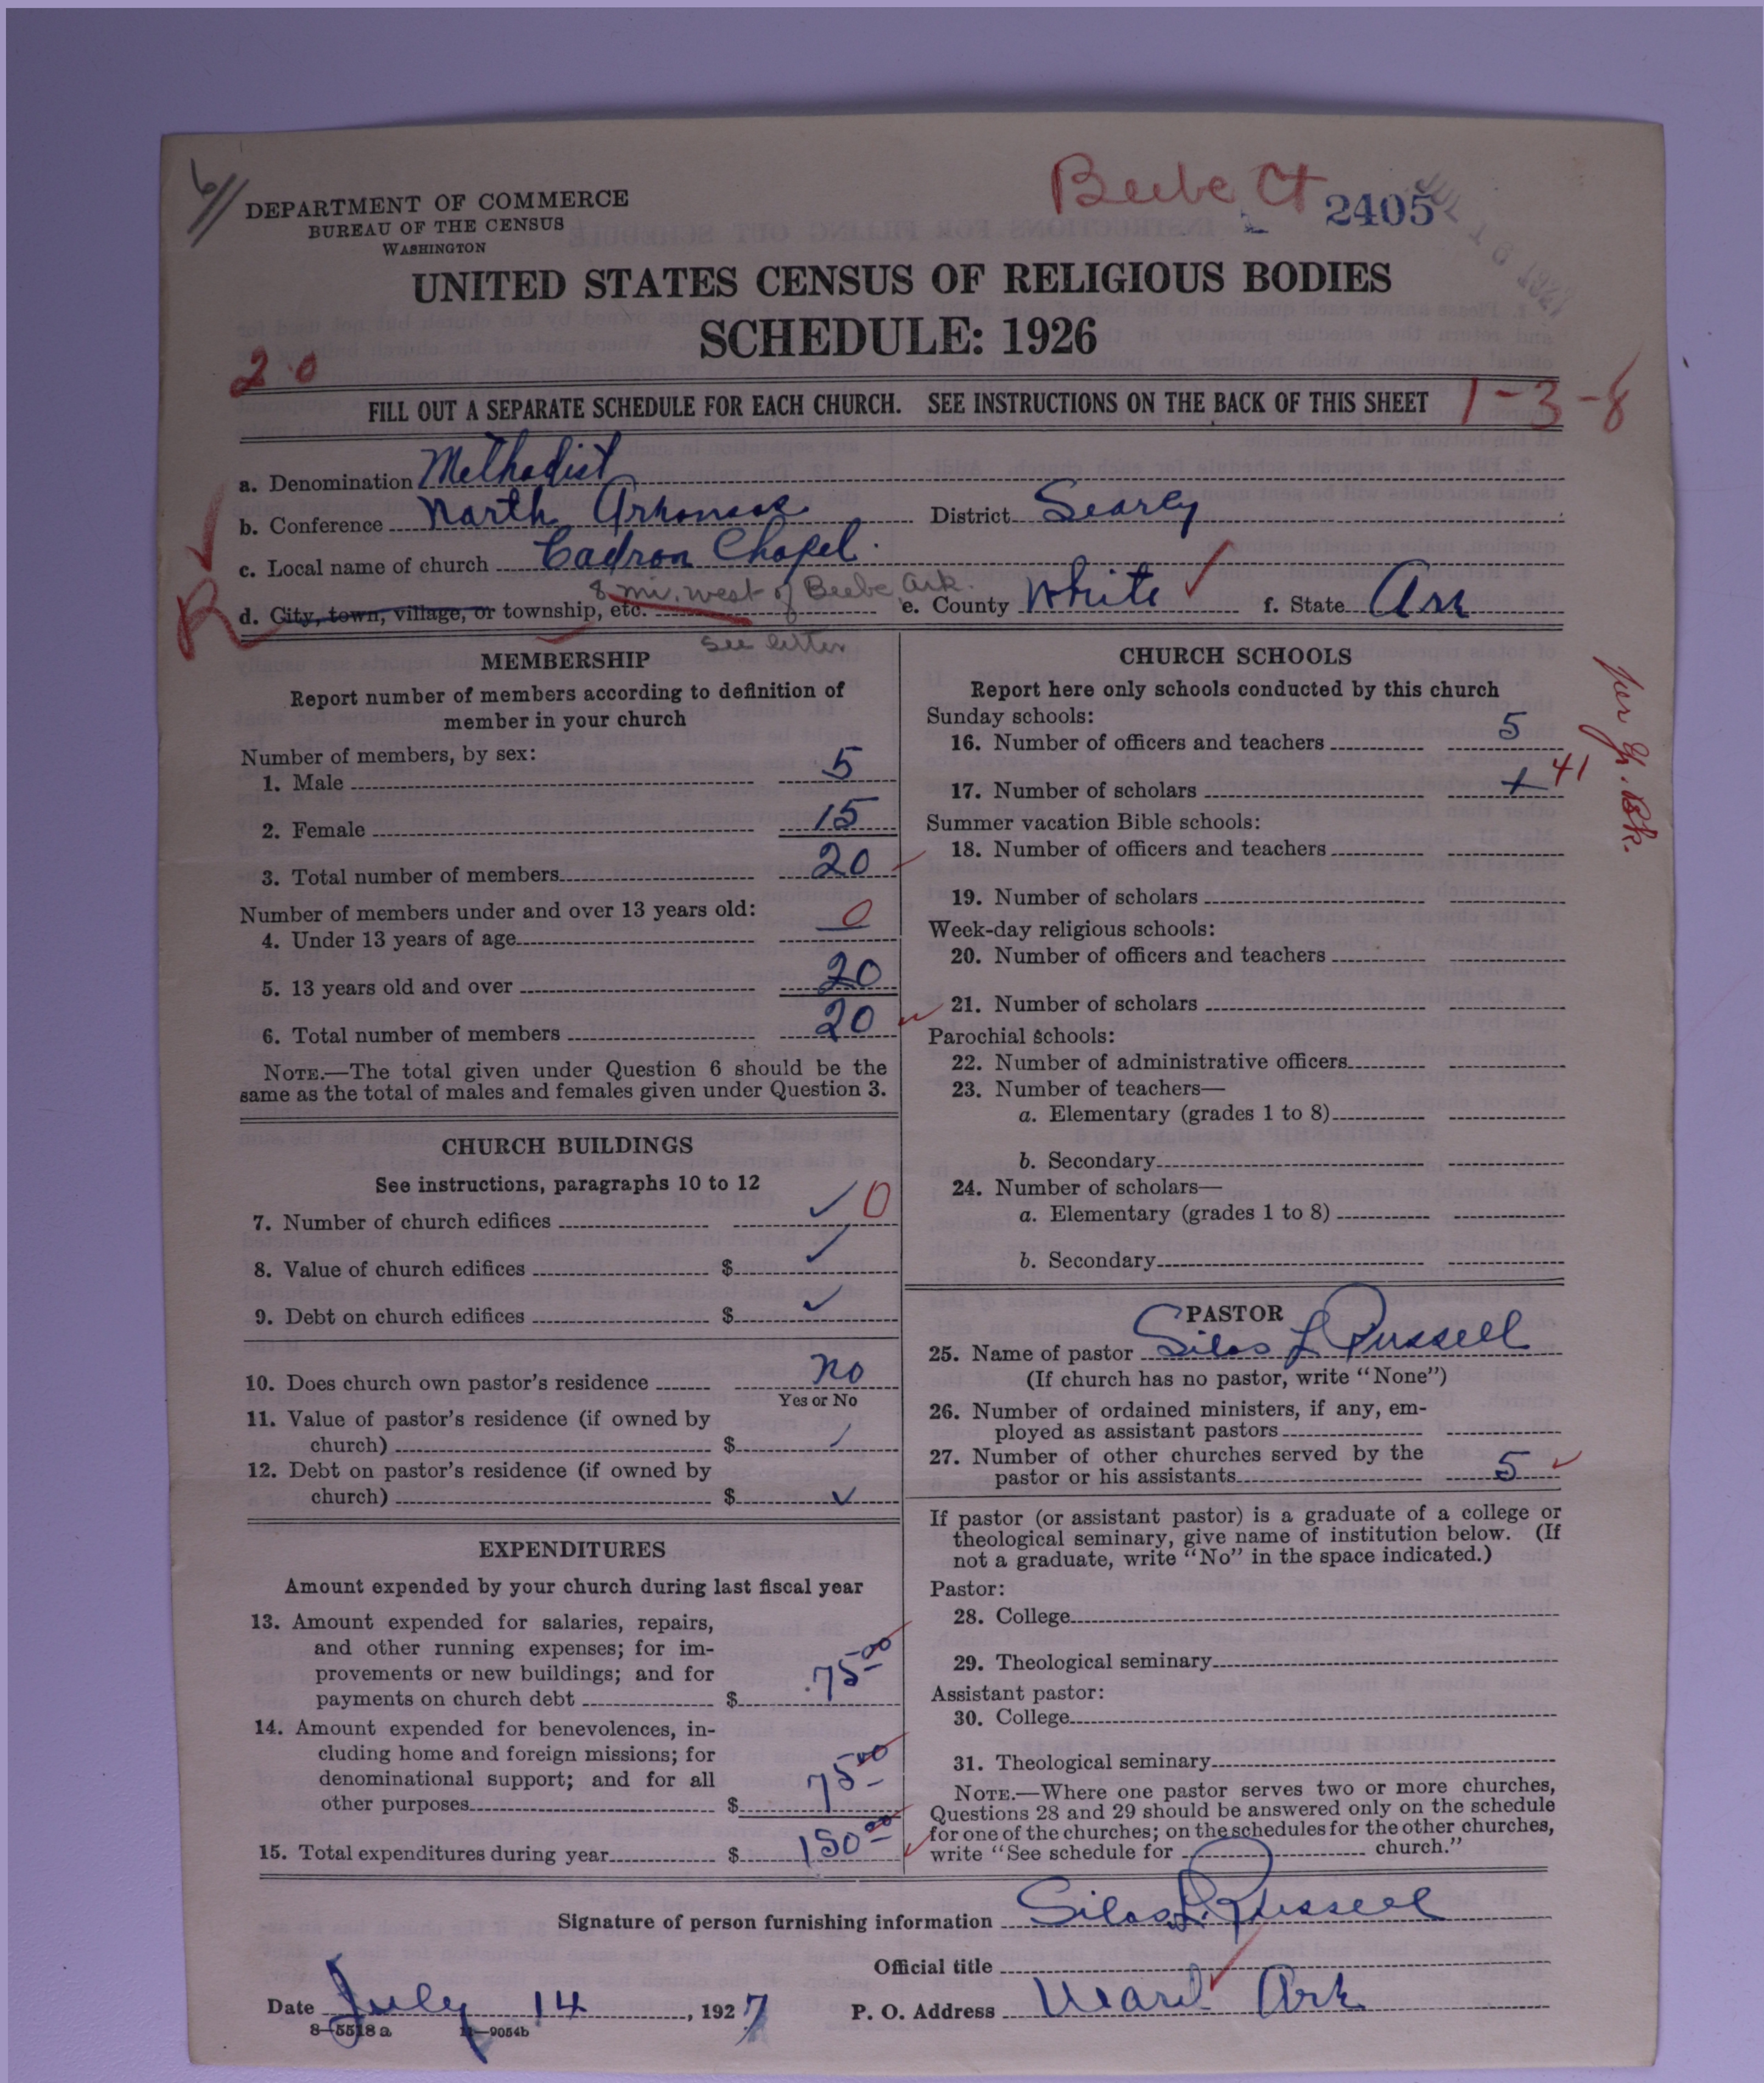 6
DEPARTMENT OF COMMERCE
BUREAU OF THE CENSUS
WASHINGTON
Beebe Ct 2405
JUL 18 1927
UNITED STATES CENSUS OF RELIGIOUS BODIES
SCHEDULE: 1926
20
FILL OUT A SEPARATE SCHEDULE FOR EACH CHURCH. SEE INSTRUCTIONS ON THE BACK OF THIS SHEET 1-3-8
a. Denomination Methodist
b. Conference North Arkansas District Searcy
c. Local name of church Cadron Chapel.
R d. City, town, village, or township, etc. 8 mi. west of Beebe Ark. e. County White f. State Ark
see letter
MEMBERSHIP
Report number of members according to definition of
member in your church
Number of members, by sex:
1. Male 5
2. Female 15
3. Total number of members 20
Number of members under and over 13 years old:
4. Under 13 years of age 0
5. 13 years old and over 20
6. Total number of members 20
NOTE.—The total given under Question 6 should be the
same as the total of males and females given under Question 3.
CHURCH BUILDINGS
See instructions, paragraphs 10 to 12
7. Number of church edifices ✓ 0
8. Value of church edifices $ ✓
9. Debt on church edifices $ ✓
10. Does church own pastor's residence No
Yes or No
11. Value of pastor's residence (if owned by
church) $ ✓
12. Debt on pastor's residence (if owned by
church) $ ✓
EXPENDITURES
Amount expended by your church during last fiscal year
13. Amount expended for salaries, repairs,
and other running expenses; for im-
provements or new buildings; and for
payments on church debt $ 75.00
14. Amount expended for benevolences, in-
cluding home and foreign missions; for
denominational support; and for all
other purposes $ 75.00
15. Total expenditures during year $ 150.00
CHURCH SCHOOLS
Report here only schools conducted by this church
Sunday schools:
16. Number of officers and teachers 5
17. Number of scholars + 41
per Yr. Bk.
Summer vacation Bible schools:
18. Number of officers and teachers
19. Number of scholars
Week-day religious schools:
20. Number of officers and teachers
21. Number of scholars
Parochial schools:
22. Number of administrative officers
23. Number of teachers—
a. Elementary (grades 1 to 8)
b. Secondary
24. Number of scholars—
a. Elementary (grades 1 to 8)
b. Secondary
PASTOR
25. Name of pastor Silas L Russell
(If church has no pastor, write "None")
26. Number of ordained ministers, if any, em-
ployed as assistant pastors
27. Number of other churches served by the
pastor or his assistants 5
If pastor (or assistant pastor) is a graduate of a college or
theological seminary, give name of institution below. (If
not a graduate, write "No" in the space indicated.)
Pastor:
28. College
29. Theological seminary
Assistant pastor:
30. College
31. Theological seminary
NOTE.—Where one pastor serves two or more churches,
Questions 28 and 29 should be answered only on the schedule
for one of the churches; on the schedules for the other churches,
write "See schedule for church."
Signature of person furnishing information Silas L. Russell
Official title
Date July 14, 1927 P. O. Address Ward Ark
8—5518 a 11—9054b